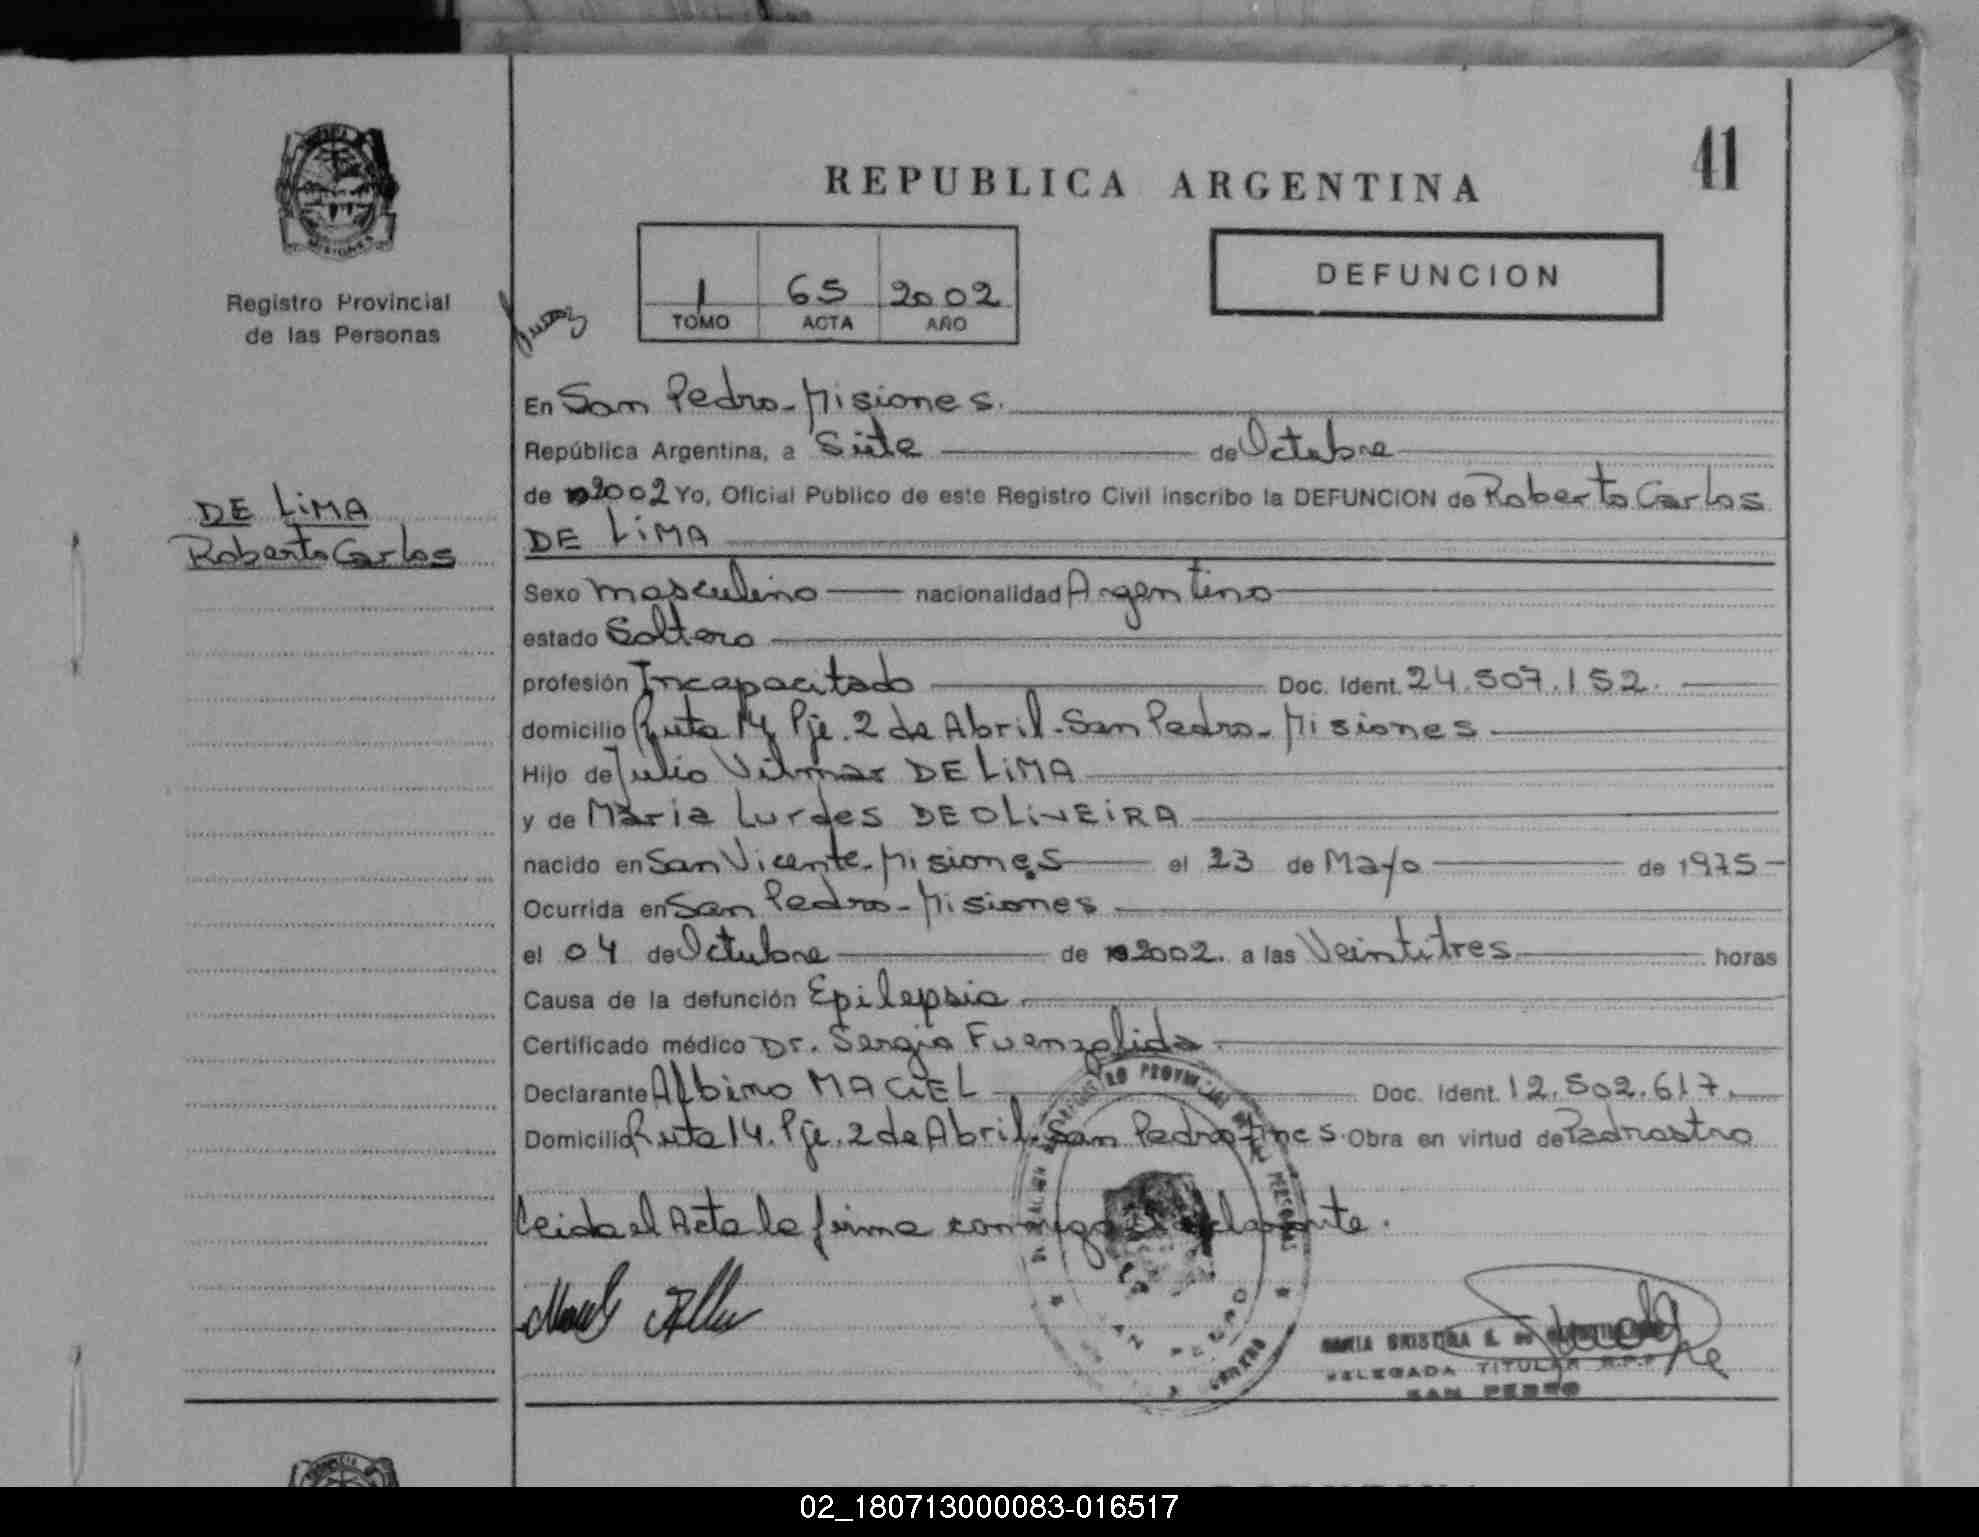 41
REPUBLICA ARGENTINA
MISIONES
Registro Provincial
de las Personas
1 65 2002
TOMO ACTA AÑO
DEFUNCION
En San Pedro - Misiones.
República Argentina, a Siete de Octubre
de 2002 Yo, Oficial Público de este Registro Civil inscribo la DEFUNCION de Roberto Carlos
DE LiMA
DE LiMA
Roberto Carlos
Sexo masculino nacionalidad Argentino
estado Soltero
profesión Incapacitado Doc. Ident. 24.507.152.
domicilio Ruta 14 Pje. 2 de Abril - San Pedro - Misiones
Hijo de Julio Vilmar DE LiMA
y de Maria Lurdes DE OLiVEiRA
nacido en San Vicente - Misiones el 23 de Mayo de 1975
Ocurrida en San Pedro - Misiones
el 04 de Octubre de 2002. a las Veintitres horas
Causa de la defunción Epilepsia.
Certificado médico Dr. Sergio Fuenzalida
Declarante Albino MACiEL Doc. Ident. 12.502.617.
Domicilio Ruta 14. Pje. 2 de Abril. San Pedro Mnes. Obra en virtud de Padrastro
Leida el Acta la firma conmigo el declarante.
DELEGADA TITULAR R.P.P.
SAN PEDRO
02_180713000083-016517